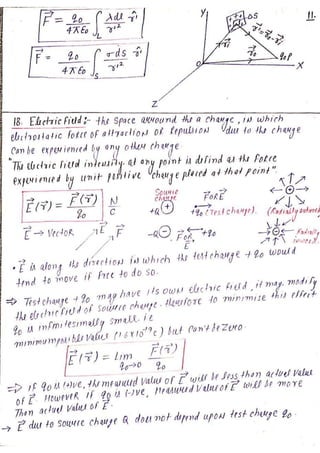 11.
F⃗ = q₀/4πε₀ ∫L λdl r̂'/r'²
F⃗ = q₀/4πε₀ ∫S σds r̂'/r'²
Y
ΔS
q₀P
O
X
Z
18. Electric field:- The space arround the a charge, in which
electrostatic force of attraction or Repulsion due to the charge
can be experienced by any other charge.
"The Electric field intensity at any point is defind as the Force
experienced by unit positive charge placed at that point"
E⃗(r⃗) = F⃗(r⃗)/q₀ N/C
Source charge
Force
+Q
+q₀ (test charge).
(Radially outward)
E⃗ → Vector
E⃗
F⃗
-Q
Force
E⃗
+q₀
Radially
inward.
• E⃗ is along the direction in which the test charge + q₀ would
tend to move if free to do so.
⇒ Test charge + q₀ may have its own electric field, it may modify
the electric field of source charge. therefore to minimise this effect
q₀ is infinitesimally small i.e
minimum possible value (1.6×10⁻¹⁹c) but can't be zero.
E⃗(r⃗) = lim q₀→0 F⃗(r⃗)/q₀
⇒ If q₀ is (+)ve, the measured value of E⃗ will be less than actual value
of E⃗. However if q₀ is (-)ve, Measured value of E⃗ will be more
Than actual value of E⃗.
→ E⃗ due to source charge Q does not depend upon test charge q₀.